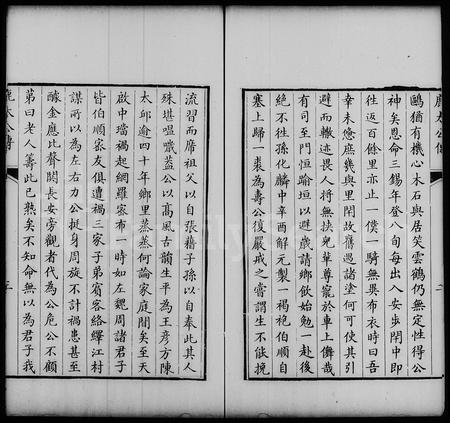 鷗猶有機心木石與居笑雲鶴仍無定性得公
神矣恩命三錫年登八旬每出入安步閈中即
徃返百餘里亦止一僕一騎無異布衣時曰吾
幸未憊庶幾與里閈故舊遇諸塗何可使其引
避而轍迹畏人將無扶鬼草尊寵於車上儛哉
有司至門恒踰垣以避歲請鄉飲始勉一赴後
絕不徃孫化麟中辛酉解元製一褐袍伯順自
塞上歸一裘為壽公復嚴戒之嘗謂生不能挽
流習而席祖父公以自張藉子孫以自奉此其人
殊堪嗢噱蓋公以高風古韻生平為王彥方陳
太邱逾四十年鄉里蒸蒸何論家庭閒矣至天
啟中璫禍起網羅密布一時如左魏周諸君子
皆伯順家友俱遭禍三家子弟賓客絡繹江村
謀所以為左右力公挺身周旋不計禍患甚至
醵金應比聲聞長安旁觀者代為公危公不顧
第曰老人壽此已熟矣不知命無以為君子我
鹿太公傳
二
鹿太公傳
三